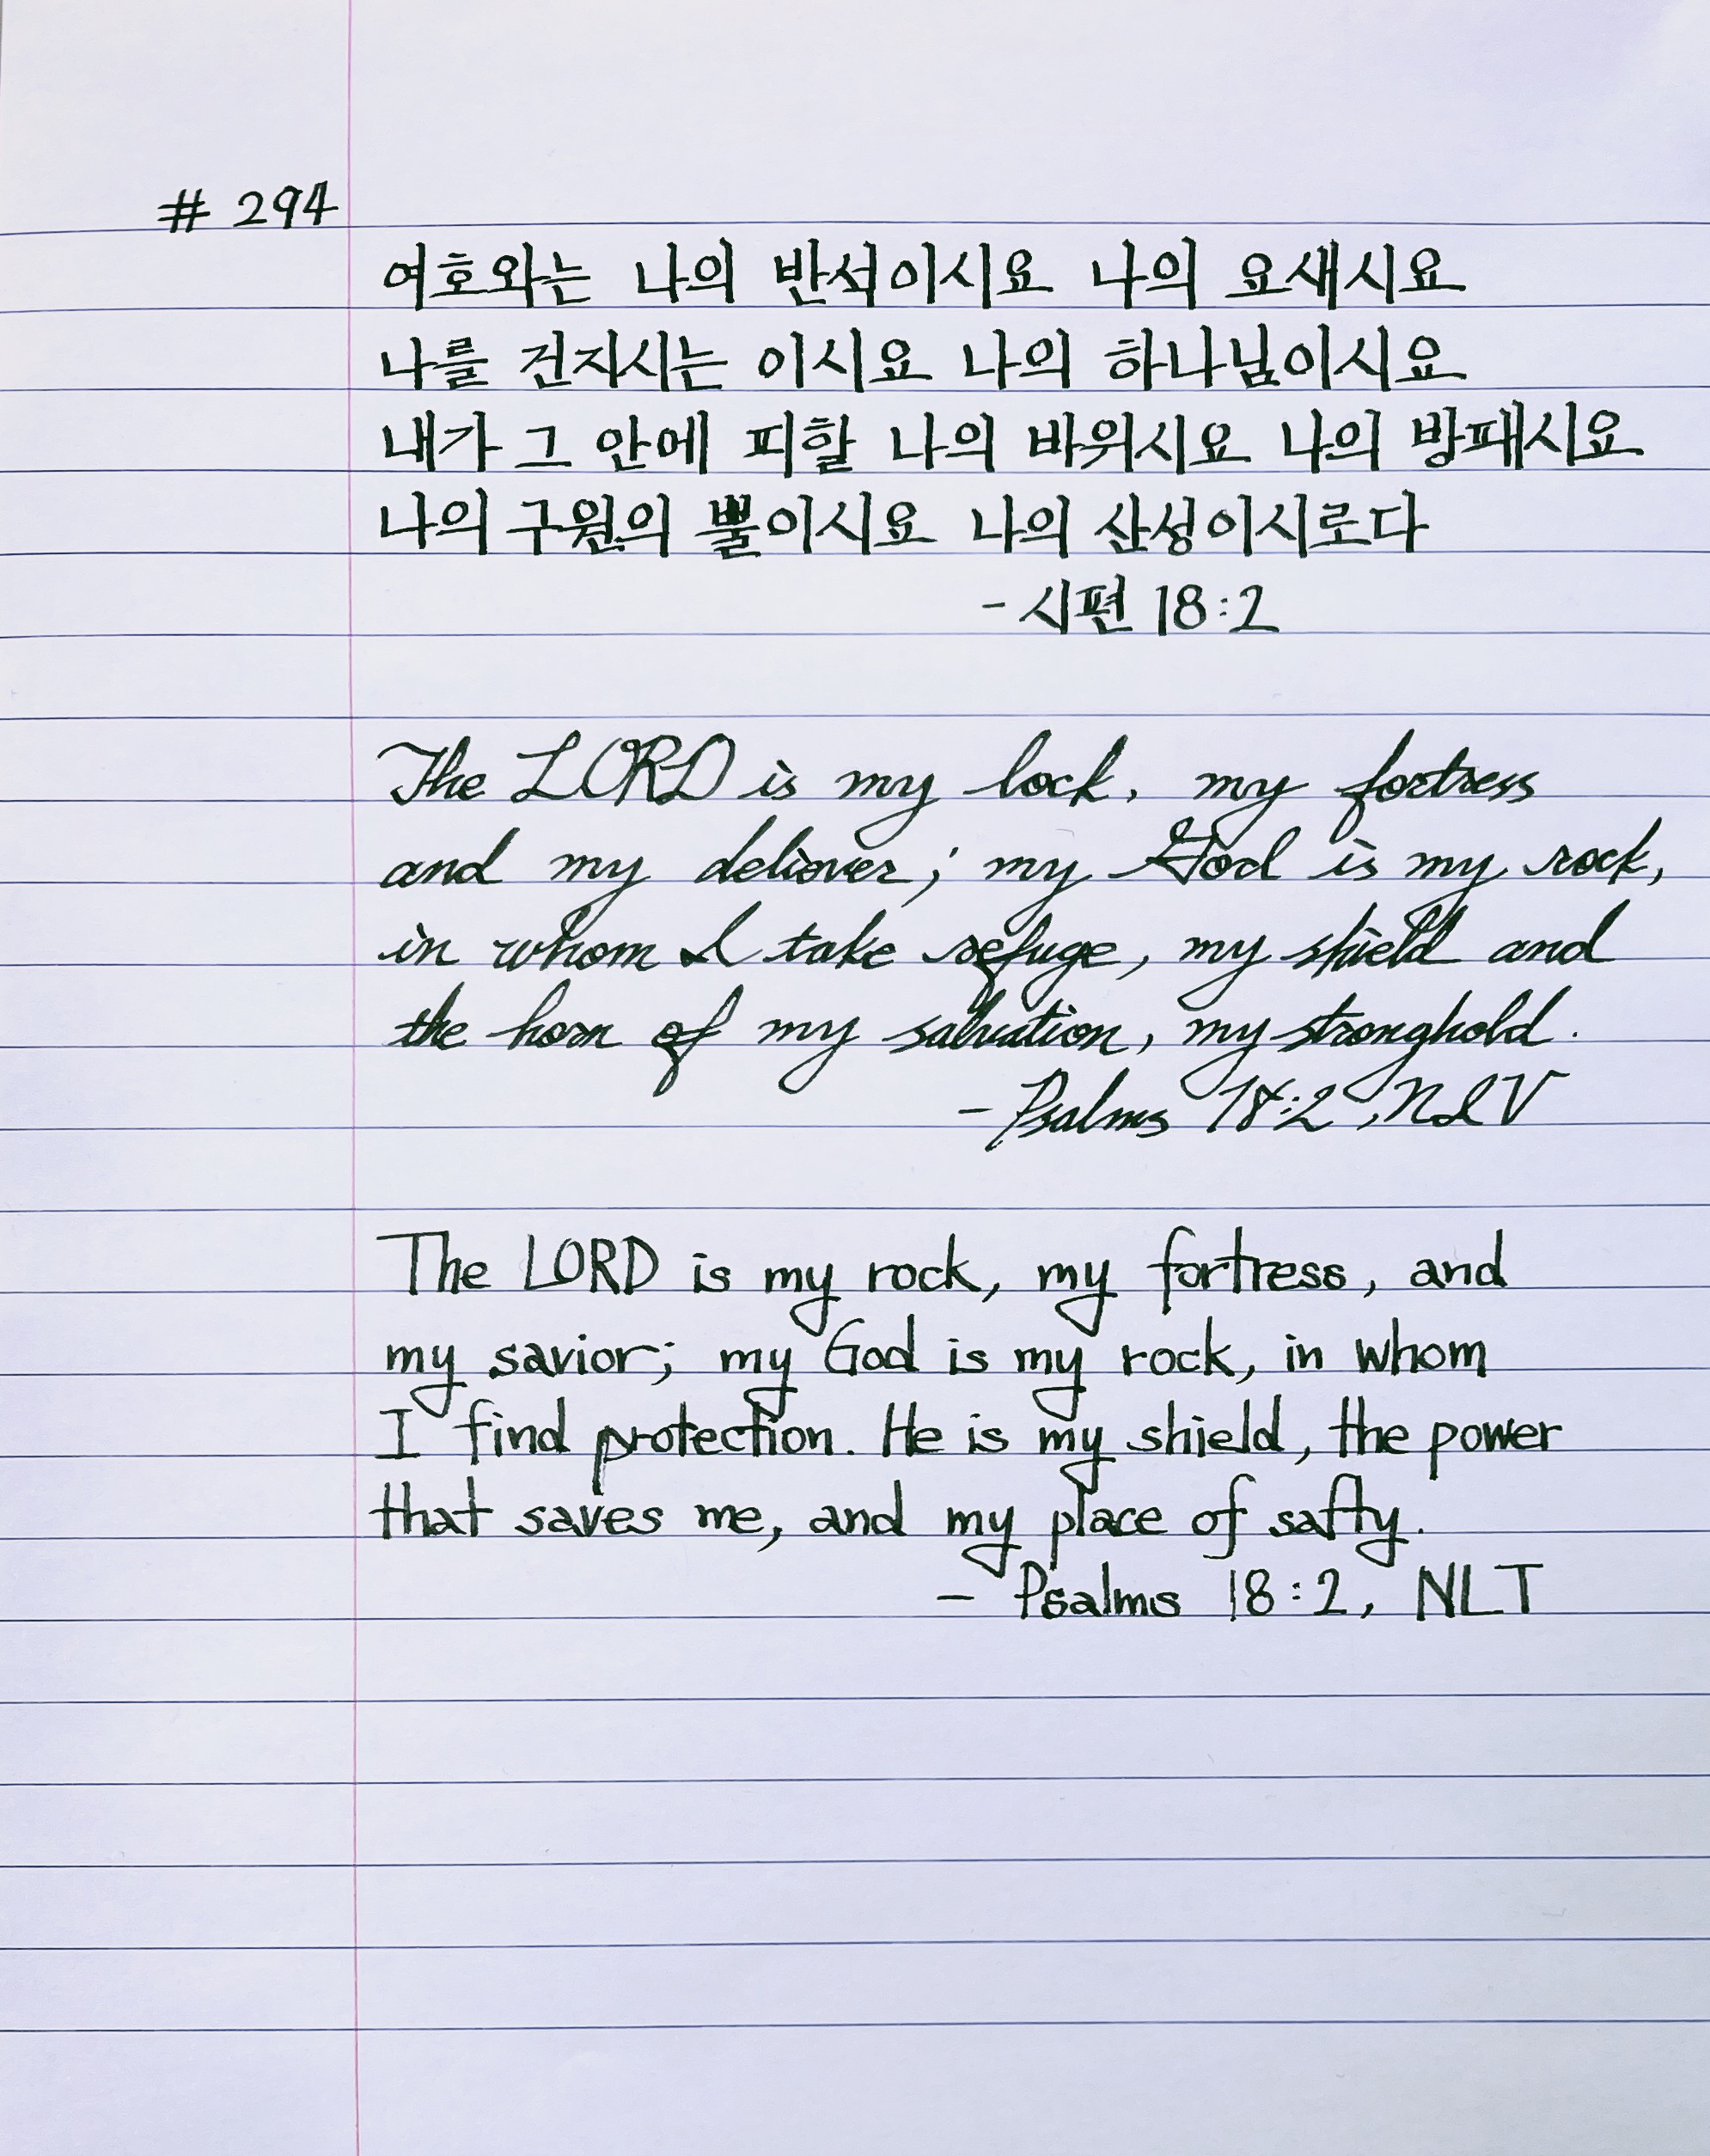 # 294
여호와는 나의 반석이시요 나의 요새시요
나를 건지시는 이시요 나의 하나님이시요
내가 그 안에 피할 나의 바위시요 나의 방패시요
나의 구원의 뿔이시요 나의 산성이시로다
- 시편 18:2
The LORD is my lock, my fortress
and my deliver; my God is my rock,
in whom I take refuge, my shield and
the horn of my salvation, my stronghold.
- Psalms 18:2, NIV
The LORD is my rock, my fortress, and
my savior; my God is my rock, in whom
I find protection. He is my shield, the power
that saves me, and my place of safty.
- Psalms 18:2, NLT